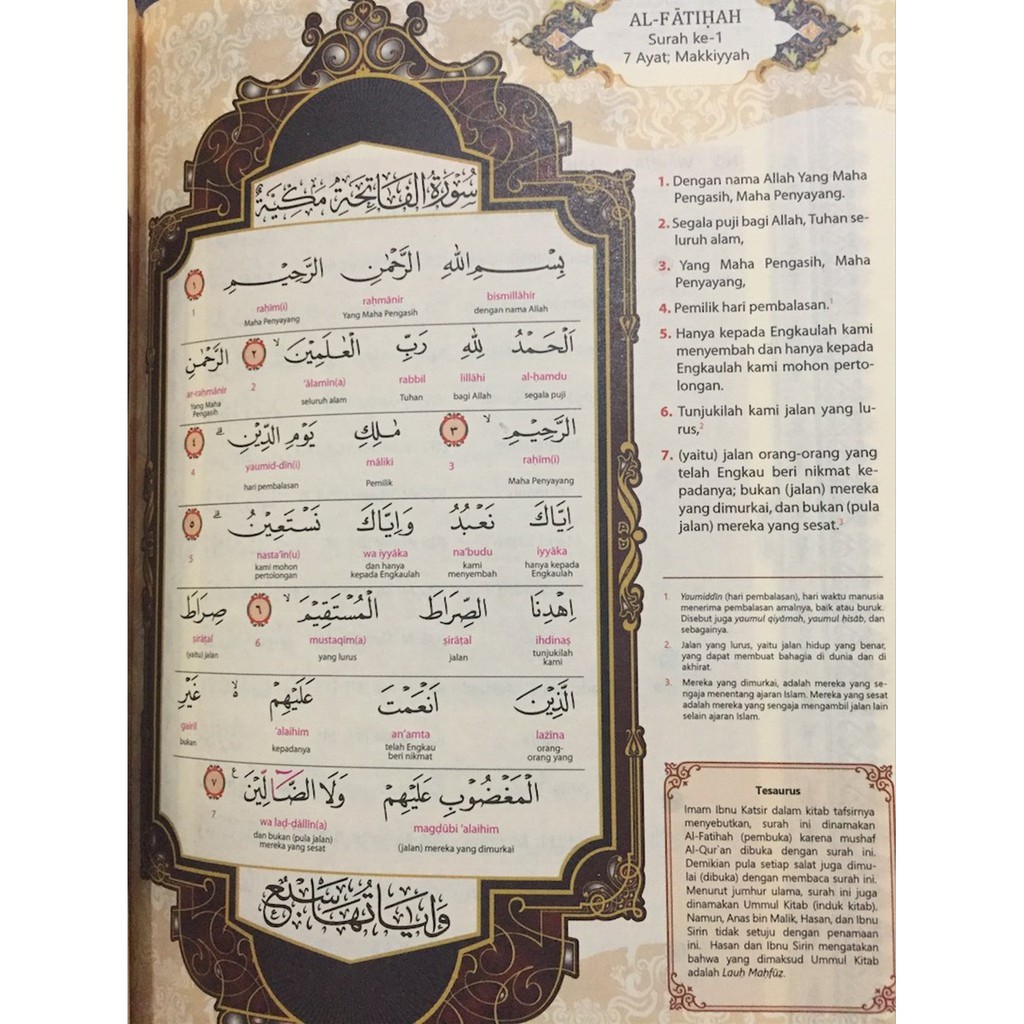 AL-FĀTIḤAH
Surah ke-1
7 Ayat; Makkiyyah
سُوْرَةُ الْفَاتِحَةِ مَكِّيَّةٌ
بِسْمِ اللّٰهِ الرَّحْمٰنِ الرَّحِيْمِ ١
bismillāhir raḥmānir raḥīm(i)
dengan nama Allah Yang Maha Pengasih Maha Penyayang 1
اَلْحَمْدُ لِلّٰهِ رَبِّ الْعٰلَمِيْنَۙ ٢ الرَّحْمٰنِ
al-ḥamdu lillāhi rabbil ‘ālamīn(a) 2 ar-raḥmānir
segala puji bagi Allah Tuhan seluruh alam Yang Maha Pengasih
الرَّحِيْمِۙ ٣ مٰلِكِ يَوْمِ الدِّيْنِۗ ٤
raḥīm(i) 3 māliki yaumid-dīn(i) 4
Maha Penyayang Pemilik hari pembalasan
اِيَّاكَ نَعْبُدُ وَاِيَّاكَ نَسْتَعِيْنُۗ ٥
iyyāka na‘budu wa iyyāka nasta‘īn(u) 5
hanya kepada Engkaulah kami menyembah dan hanya kepada Engkaulah kami mohon pertolongan
اِهْدِنَا الصِّرَاطَ الْمُسْتَقِيْمَۙ ٦ صِرَاطَ
ihdinaṣ ṣirāṭal mustaqīm(a) 6 ṣirāṭal
tunjukilah kami jalan yang lurus (yaitu) jalan
الَّذِيْنَ اَنْعَمْتَ عَلَيْهِمْ ەۙ غَيْرِ
lażīna an‘amta ‘alaihim gairil
orang-orang yang telah Engkau beri nikmat kepadanya bukan
الْمَغْضُوْبِ عَلَيْهِمْ وَلَا الضَّاۤلِّيْنَ ࣖ ٧
magḍūbi ‘alaihim wa laḍ-ḍāllīn(a) 7
(jalan) mereka yang dimurkai dan bukan (pula jalan) mereka yang sesat
وَاٰيَاتُهَا سَبْعٌ
1. Dengan nama Allah Yang Maha
Pengasih, Maha Penyayang.
2. Segala puji bagi Allah, Tuhan se-
luruh alam,
3. Yang Maha Pengasih, Maha
Penyayang,
4. Pemilik hari pembalasan.¹
5. Hanya kepada Engkaulah kami
menyembah dan hanya kepada
Engkaulah kami mohon perto-
longan.
6. Tunjukilah kami jalan yang lu-
rus,²
7. (yaitu) jalan orang-orang yang
telah Engkau beri nikmat ke-
padanya; bukan (jalan) mereka
yang dimurkai, dan bukan (pula
jalan) mereka yang sesat.³
1. Yaumiddīn (hari pembalasan), hari waktu manusia
menerima pembalasan amalnya, baik atau buruk.
Disebut juga yaumul qiyāmah, yaumul ḥisāb, dan
sebagainya.
2. Jalan yang lurus, yaitu jalan hidup yang benar,
yang dapat membuat bahagia di dunia dan di
akhirat.
3. Mereka yang dimurkai, adalah mereka yang se-
ngaja menentang ajaran Islam. Mereka yang sesat
adalah mereka yang sengaja mengambil jalan lain
selain ajaran Islam.
Tesaurus
Imam Ibnu Katsir dalam kitab tafsirnya
menyebutkan, surah ini dinamakan
Al-Fatihah (pembuka) karena mushaf
Al-Qur`an dibuka dengan surah ini.
Demikian pula setiap salat juga dimu-
lai (dibuka) dengan membaca surah ini.
Menurut jumhur ulama, surah ini juga
dinamakan Ummul Kitab (induk kitab).
Namun, Anas bin Malik, Hasan, dan Ibnu
Sirin tidak setuju dengan penamaan
ini. Hasan dan Ibnu Sirin mengatakan
bahwa yang dimaksud Ummul Kitab
adalah Lauḥ Maḥfūẓ.